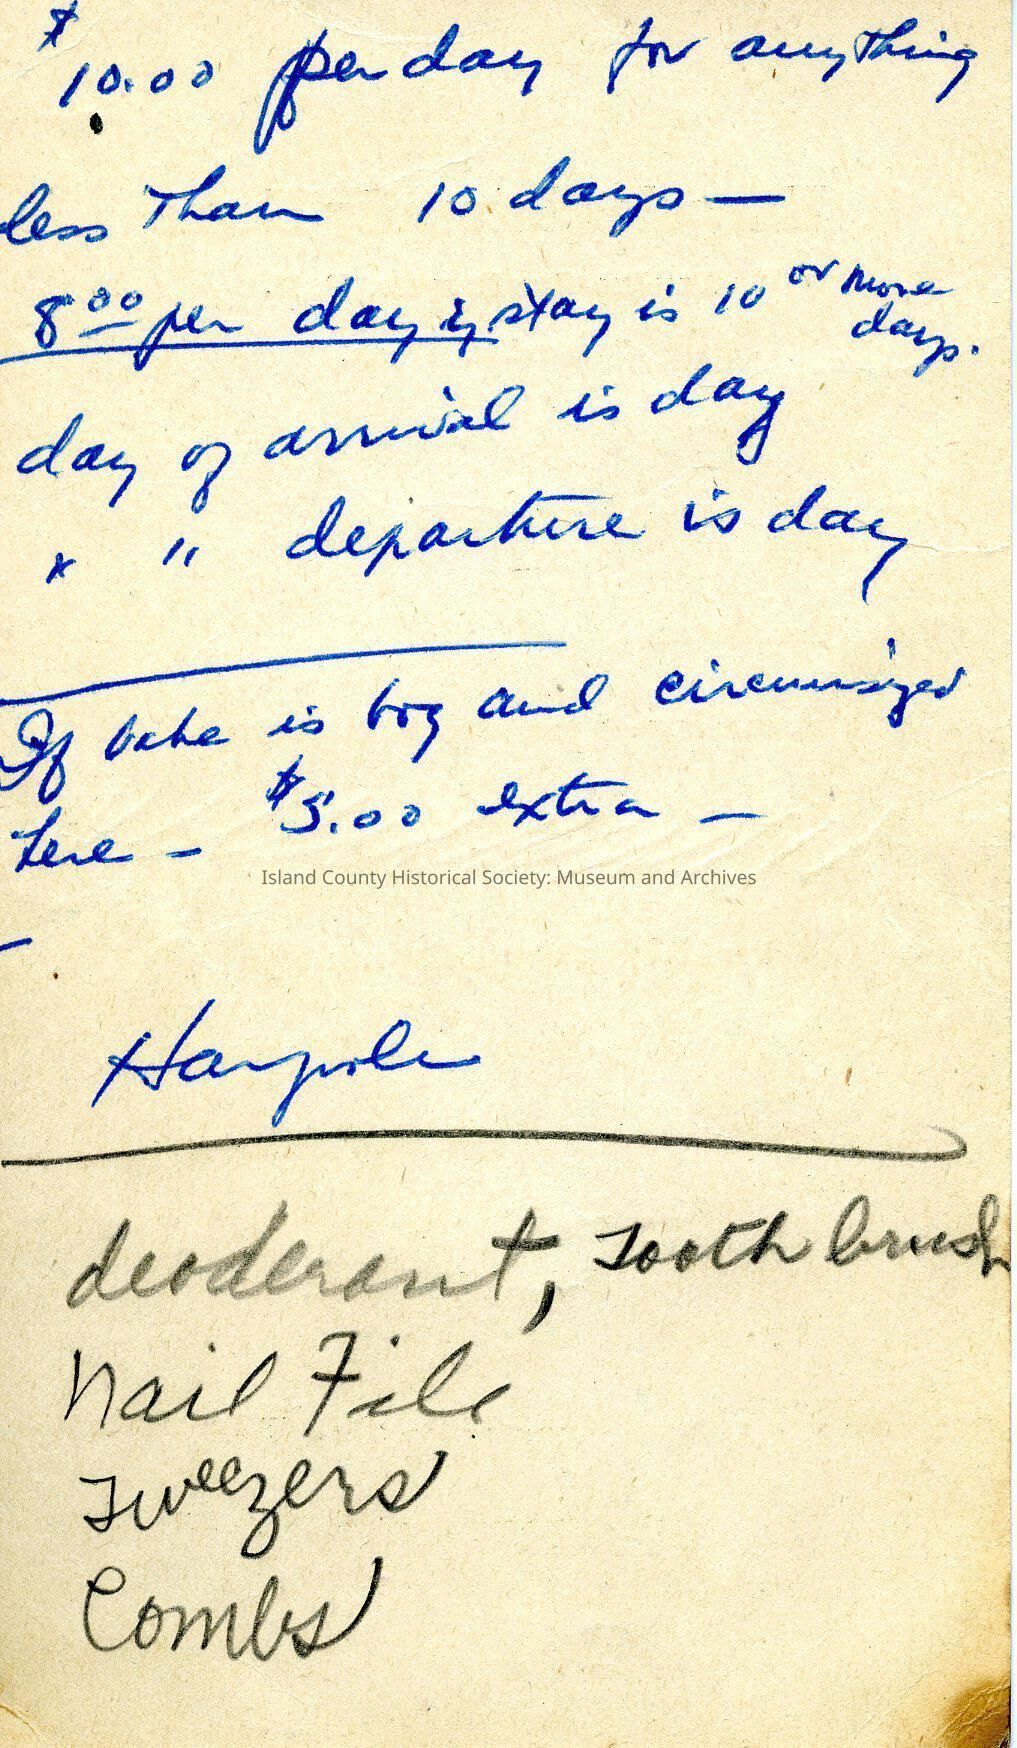 $10.00 per day for anything
less than 10 days —
8.00 per day if stay is 10 or more days.
day of arrival is day
" " departure is day
If babe is boy and circumsized
here — $5.00 extra —
Island County Historical Society: Museum and Archives
Harpole
deoderant, Tooth brush
Nail File
Tweezers
Combs